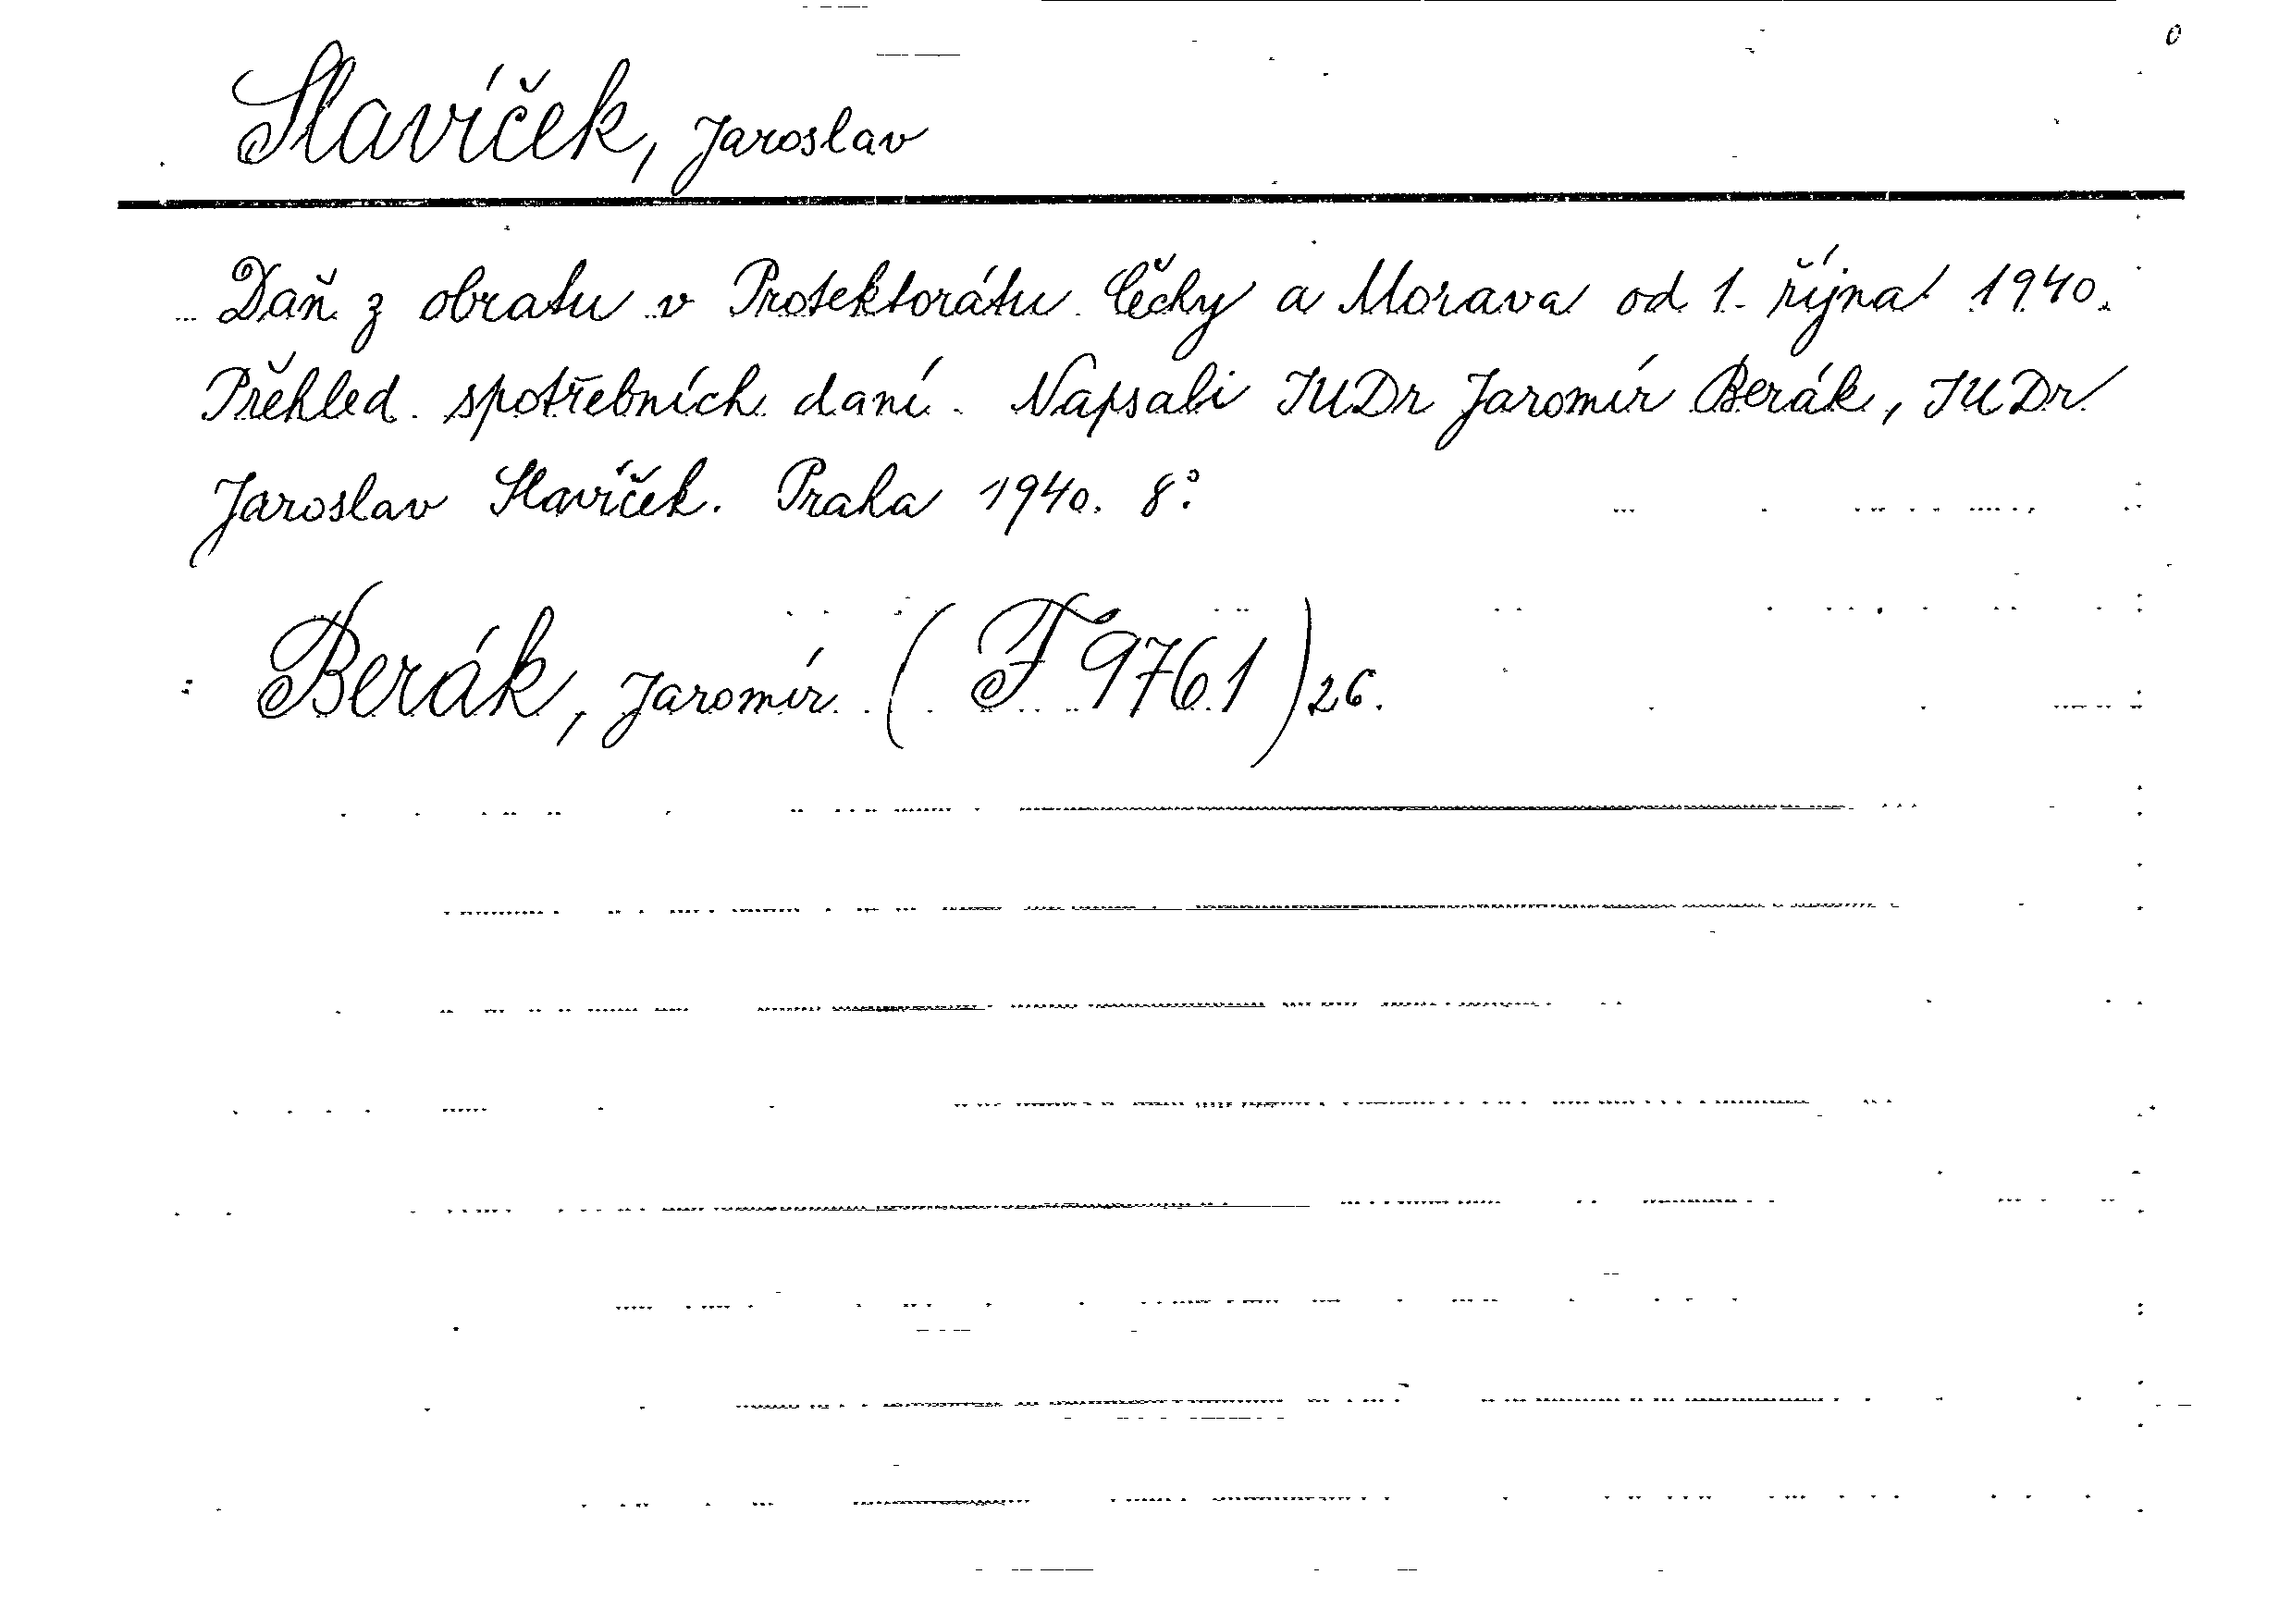 Slavíček, Jaroslav
Daň z obratu v Protektorátu Čechy a Morava od 1. října 1940.
Přehled spotřebních daní. Napsali JUDr Jaromír Berák, JUDr
Jaroslav Slavíček. Praha 1940. 8°.
Berák, Jaromír (F 9761) 26.